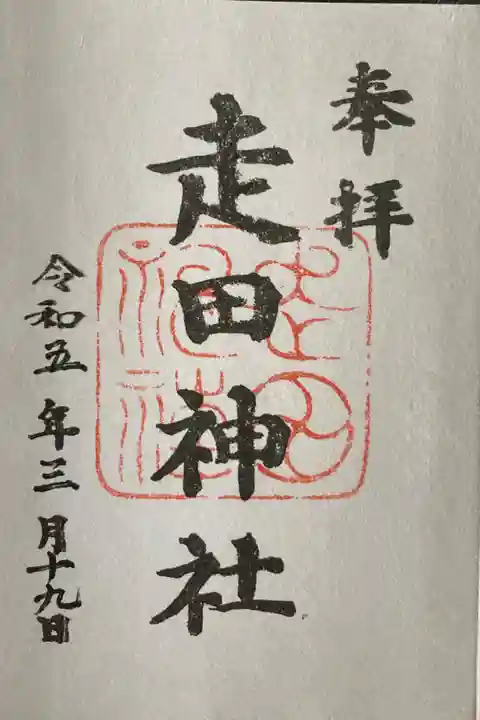 奉拝
走田神社
令和五年三月十九日